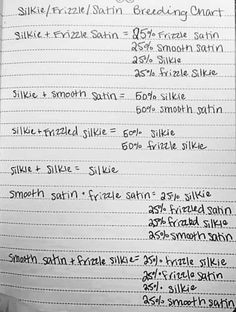 Silkie/Frizzle/Satin Breeding Chart
Silkie + Frizzle Satin = 25% Frizzle Satin
25% Smooth Satin
25% Silkie
25% frizzle Silkie
Silkie + Smooth Satin = 50% Silkie
50% frizzle Silkie
Silkie + frizzled Silkie = 50% Silkie
50% frizzle Silkie
Silkie + Silkie = Silkie
Smooth Satin + frizzle Satin = 25% Silkie
25% frizzled Satin
25% frizzled Silkie
25% Smooth Satin
Smooth Satin + frizzle Silkie = 25% frizzle Silkie
25% frizzle Satin
25% Silkie
25% Smooth Satin